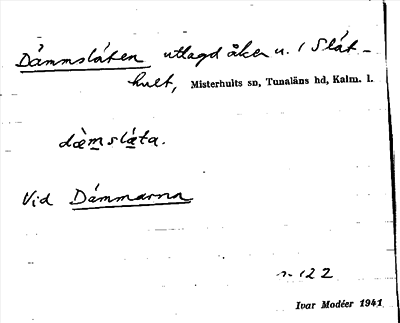 Dämmslåten utlagd åker u. 1 Slåt-
hult, Misterhults sn, Tunaläns hd, Kalm. l.
dæmslåta.
Vid Dämmarna
n. 122
Ivar Modéer 1941